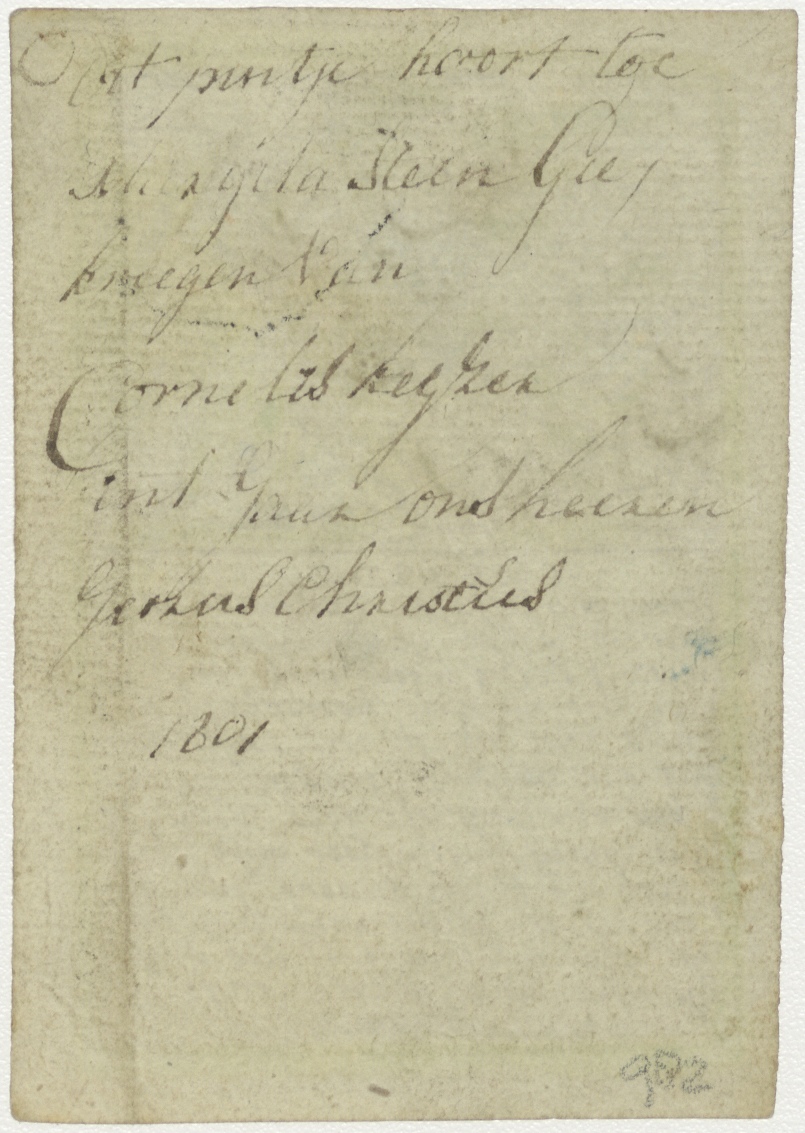 Dit printje hoort toe
Margrita Steen Gee
kreegen Van
Cornelis keyzer
int Jaar ons heeren
Jeshus Christus
1801
992